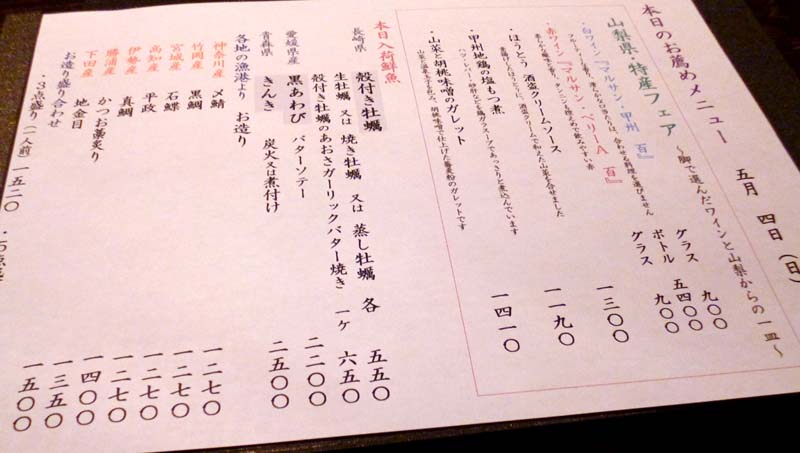 本日のお薦めメニュー　五月　四日（日）
山梨県・特産フェア　～脚で選んだワインと山梨からの一皿～
・白ワイン『マルサン・甲州　百』　グラス　九〇〇
ボトル　五四〇〇
・赤ワイン『マルサン・ベリーA　百』　グラス　九〇〇
柔らかな果味と香り、タンニンも控えめで飲みやすい赤
・ほうとう　酒盗クリームソース　一三〇〇
・甲州地鶏の塩もつ煮　一一九〇
ハツ・レバー・砂肝などを鶏ガラスープであっさりと煮込んでいます
・山菜と胡桃味噌のガレット　一四一〇
本日入荷鮮魚
長崎県　殻付き牡蠣
生牡蠣　又は　焼き牡蠣　又は　蒸し牡蠣　各　五五〇
殻付き牡蠣のあおさガーリックバター焼き　一ケ　六五〇
愛媛県産　黒あわび　バターソテー　二二〇〇
青森県　きんき　炭火又は煮付け　二五〇〇
各地の漁港より　お造り
神奈川産　〆鯖　一二七〇
竹岡産　黒鯛　一二七〇
宮城産　石鰈　一二七〇
高知産　平政　一二七〇
伊勢産　真鯛　一四〇〇
勝浦産　かつお藁炙り　一三五〇
下田産　地金目　一五〇〇
お造り盛り合わせ
・3点盛り（一人前）一五二〇